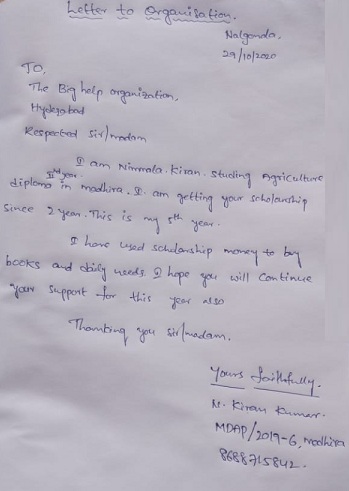 Letter to Organisation.
Nalgonda,
29/10/2020
TO,
The Big help organization,
Hyderabad
Respected Sir/madam
I am Nirmala. Kiran. studing Agriculture
IInd year.
diploma in madhira. I. am getting your scholarship
since 2 year. This is my 5th year.
I have used scholarship money to buy
books and daily needs. I hope you will continue
your support for this year also
Thanking you sir/madam.
Yours faithfully.
N. Kiran Kumar.
MDAP/2019-6, madhira
8688715842.